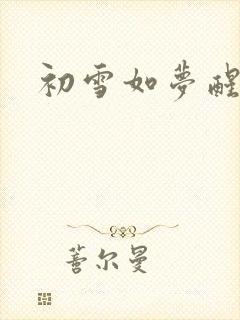 初雪如夢醒
蓍尔曼